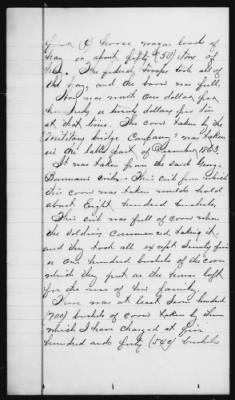 four (4) horse wagon loads of
hay or about fifty (50) tons of
hay. The federal troops took all of
the hay, and the barn was full.
Corn was worth one dollar per
hundred & twenty dollars per ton
at that time. The corn taken by the
Military bridge Company was taken
in the latter part of December 1863.
It was taken from the said Geo.
Barmans cribs. This crib from which
this corn was taken would hold
about Eight hundred bushels.
This crib was full of corn when
the soldiers commenced taking it
and they took all except Seventy five
or one hundred bushels of the corn
which they put in the house loft
for the use of his family.
There was at least Seven hundred
(700) bushels of corn taken by them
which I have charged at five
hundred and forty (540) bushels